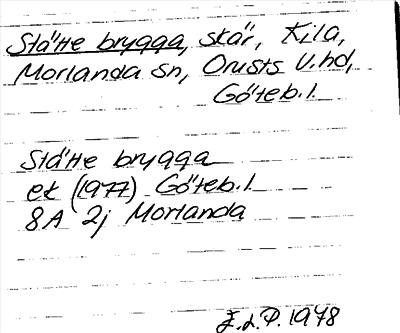 Stätte brygga, skär, Kila,
Morlanda sn, Orusts V.hd,
Göteb.l.
Stätte brygga
ek (1977) Göteb.l.
8A 2j Morlanda
1978